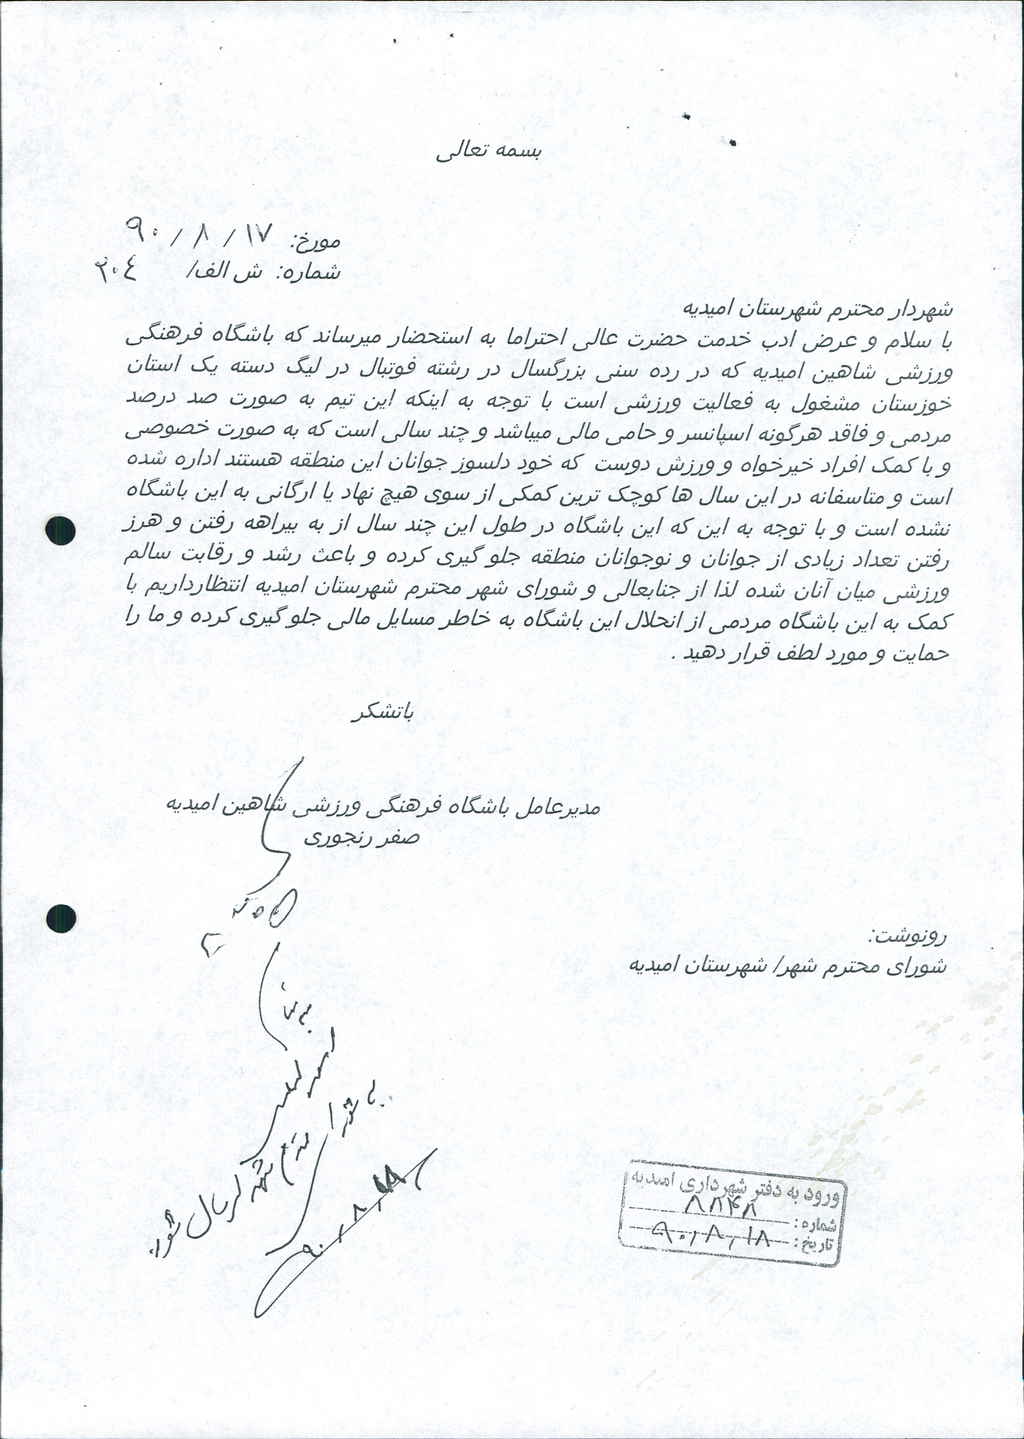 بسمه تعالی
مورخ: ۹۰/۸/۱۷
شماره: ش الف/ ۲۰٤
شهردار محترم شهرستان امیدیه
با سلام و عرض ادب خدمت حضرت عالی احتراما به استحضار میرساند که باشگاه فرهنگی
ورزشی شاهین امیدیه که در رده سنی بزرگسال در رشته فوتبال در لیگ دسته یک استان
خوزستان مشغول به فعالیت ورزشی است با توجه به اینکه این تیم به صورت صد درصد
مردمی و فاقد هرگونه اسپانسر و حامی مالی میباشد و چند سالی است که به صورت خصوصی
و با کمک افراد خیرخواه و ورزش دوست که خود دلسوز جوانان این منطقه هستند اداره شده
است و متاسفانه در این سال ها کوچک ترین کمکی از سوی هیچ نهاد یا ارگانی به این باشگاه
نشده است و با توجه به این که این باشگاه در طول این چند سال از به بیراهه رفتن و هرز
رفتن تعداد زیادی از جوانان و نوجوانان منطقه جلو گیری کرده و باعث رشد و رقابت سالم
ورزشی میان آنان شده لذا از جنابعالی و شورای شهر محترم شهرستان امیدیه انتظارداریم با
کمک به این باشگاه مردمی از انحلال این باشگاه به خاطر مسایل مالی جلو گیری کرده و ما را
حمایت و مورد لطف قرار دهید .
باتشکر
مدیرعامل باشگاه فرهنگی ورزشی شاهین امیدیه
صفر رنجوری
رونوشت:
شورای محترم شهر/ شهرستان امیدیه
به شورا محترم شهر ارسال شود
۹۰/۸/۱۸
ورود به دفتر شهرداری امیدیه
شماره: ۸۸۴۸
تاریخ: ۹۰/۸/۱۸